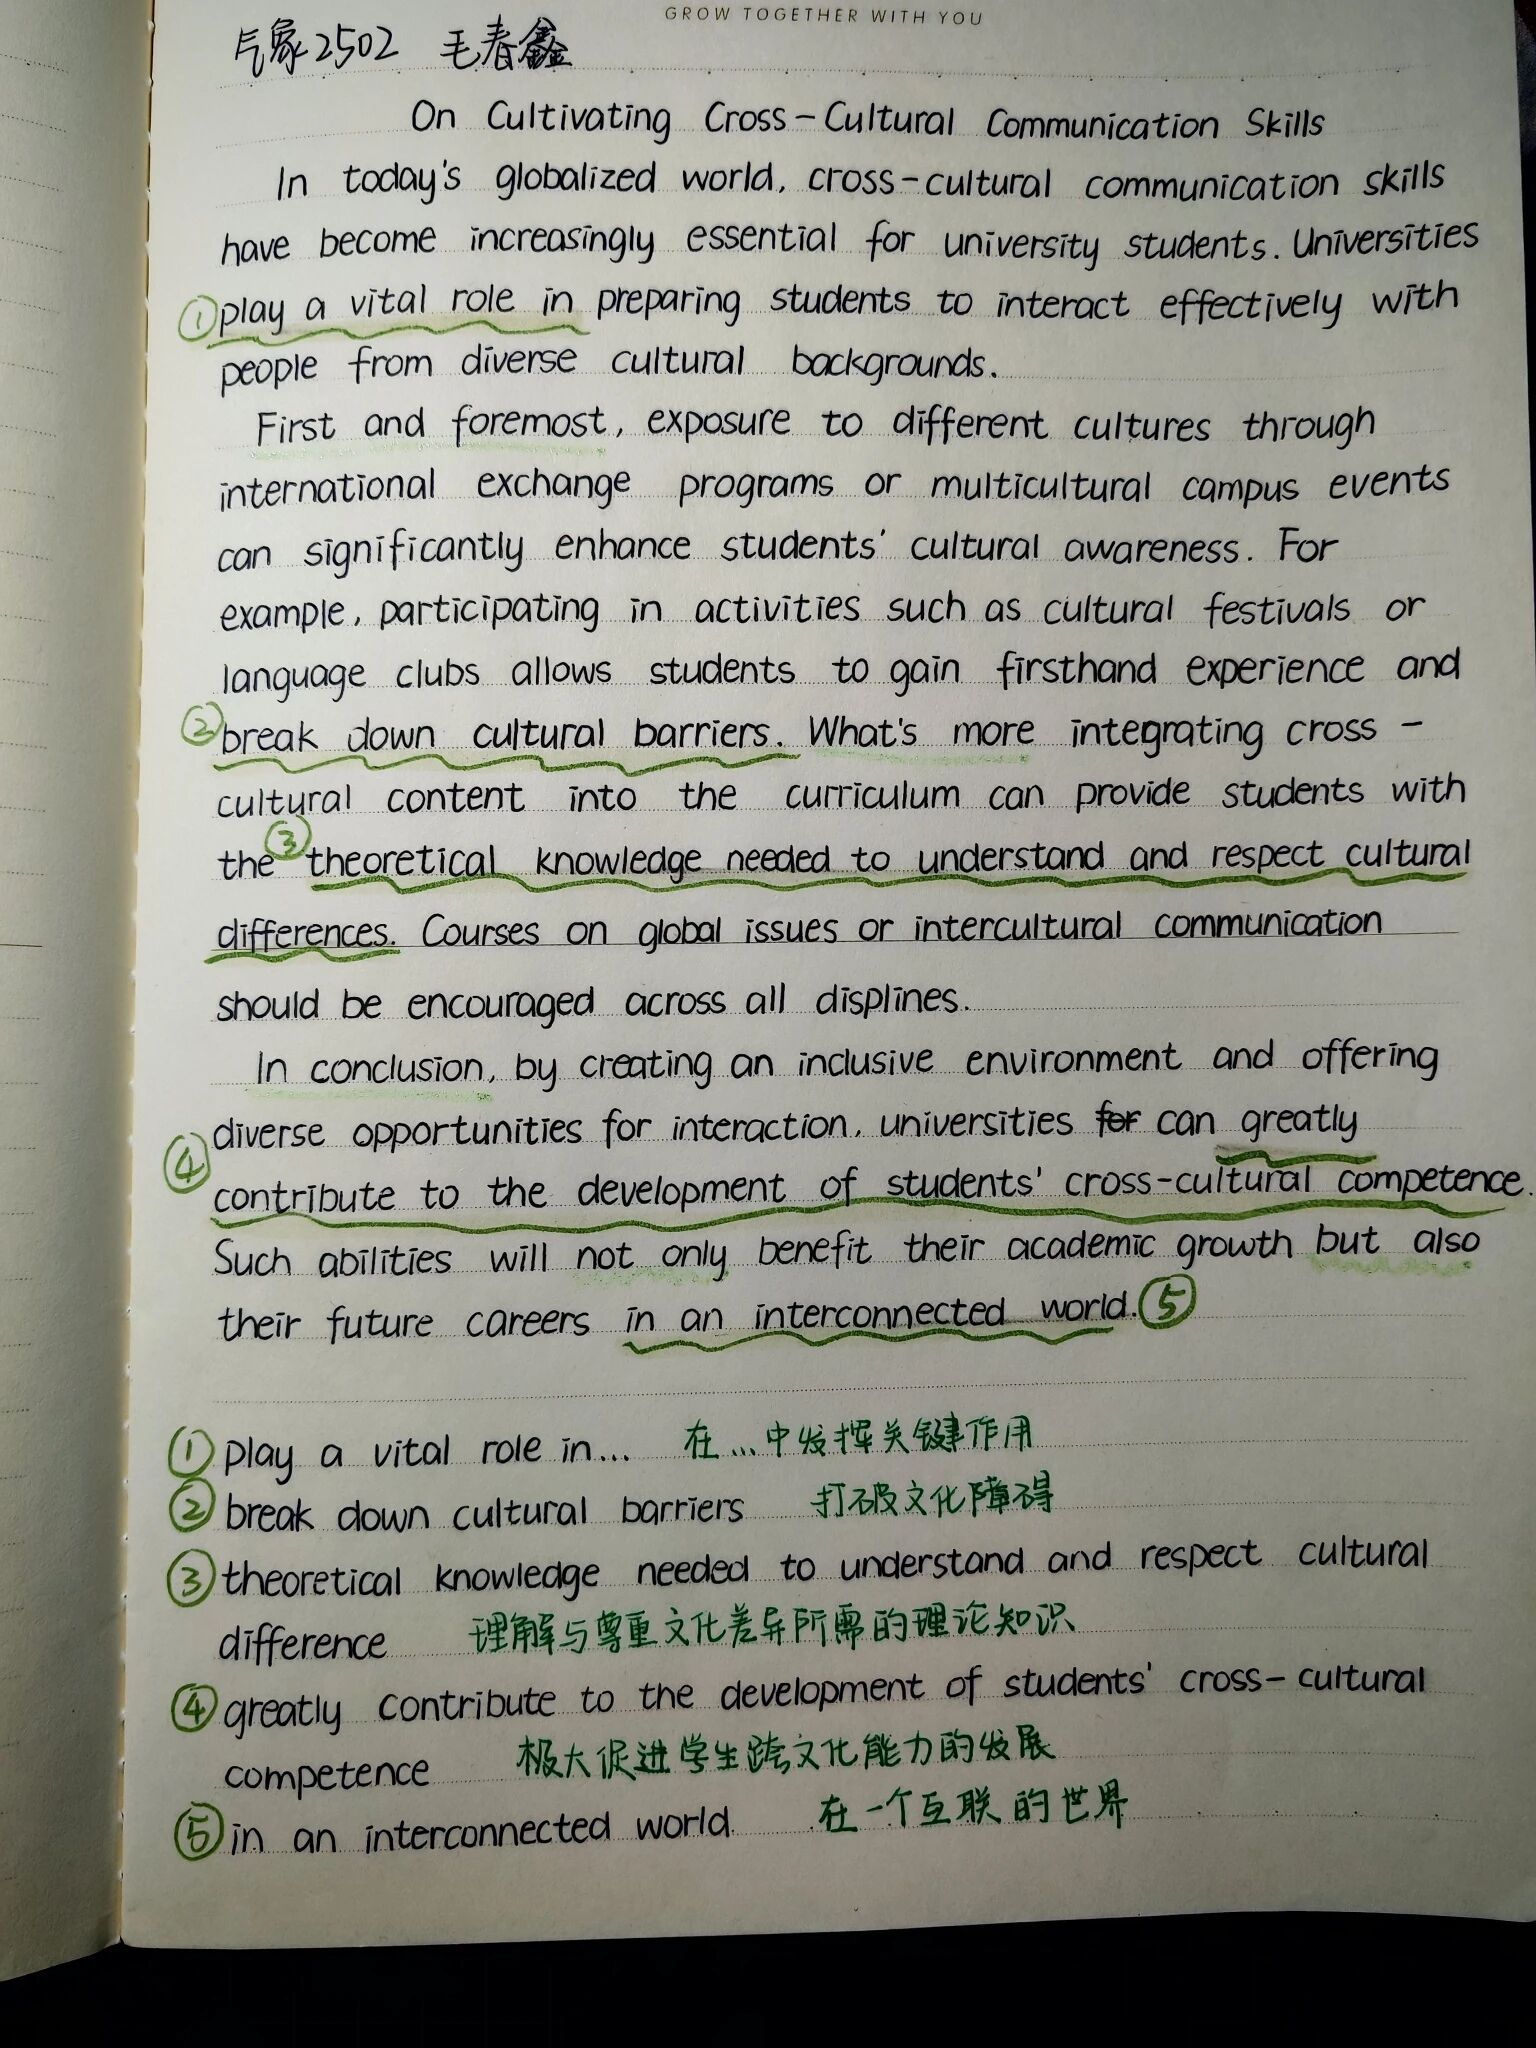 GROW TOGETHER WITH YOU
气象2502 毛春鑫
On Cultivating Cross-Cultural Communication Skills
In today's globalized world, cross-cultural communication skills
have become increasingly essential for university students. Universities
①play a vital role in preparing students to interact effectively with
people from diverse cultural backgrounds.
First and foremost, exposure to different cultures through
international exchange programs or multicultural campus events
can significantly enhance students' cultural awareness. For
example, participating in activities such as cultural festivals or
language clubs allows students to gain firsthand experience and
②break down cultural barriers. What's more integrating cross-
cultural content into the curriculum can provide students with
the ③theoretical knowledge needed to understand and respect cultural
differences. Courses on global issues or intercultural communication
should be encouraged across all displines.
In conclusion, by creating an inclusive environment and offering
diverse opportunities for interaction, universities for can greatly
④contribute to the development of students' cross-cultural competence.
Such abilities will not only benefit their academic growth but also
their future careers in an interconnected world.⑤
①play a vital role in... 在...中发挥关键作用
②break down cultural barriers 打破文化障碍
③theoretical knowledge needed to understand and respect cultural
difference 理解与尊重文化差异所需的理论知识
④greatly contribute to the development of students' cross-cultural
competence 极大促进学生跨文化能力的发展
⑤in an interconnected world. 在一个互联的世界